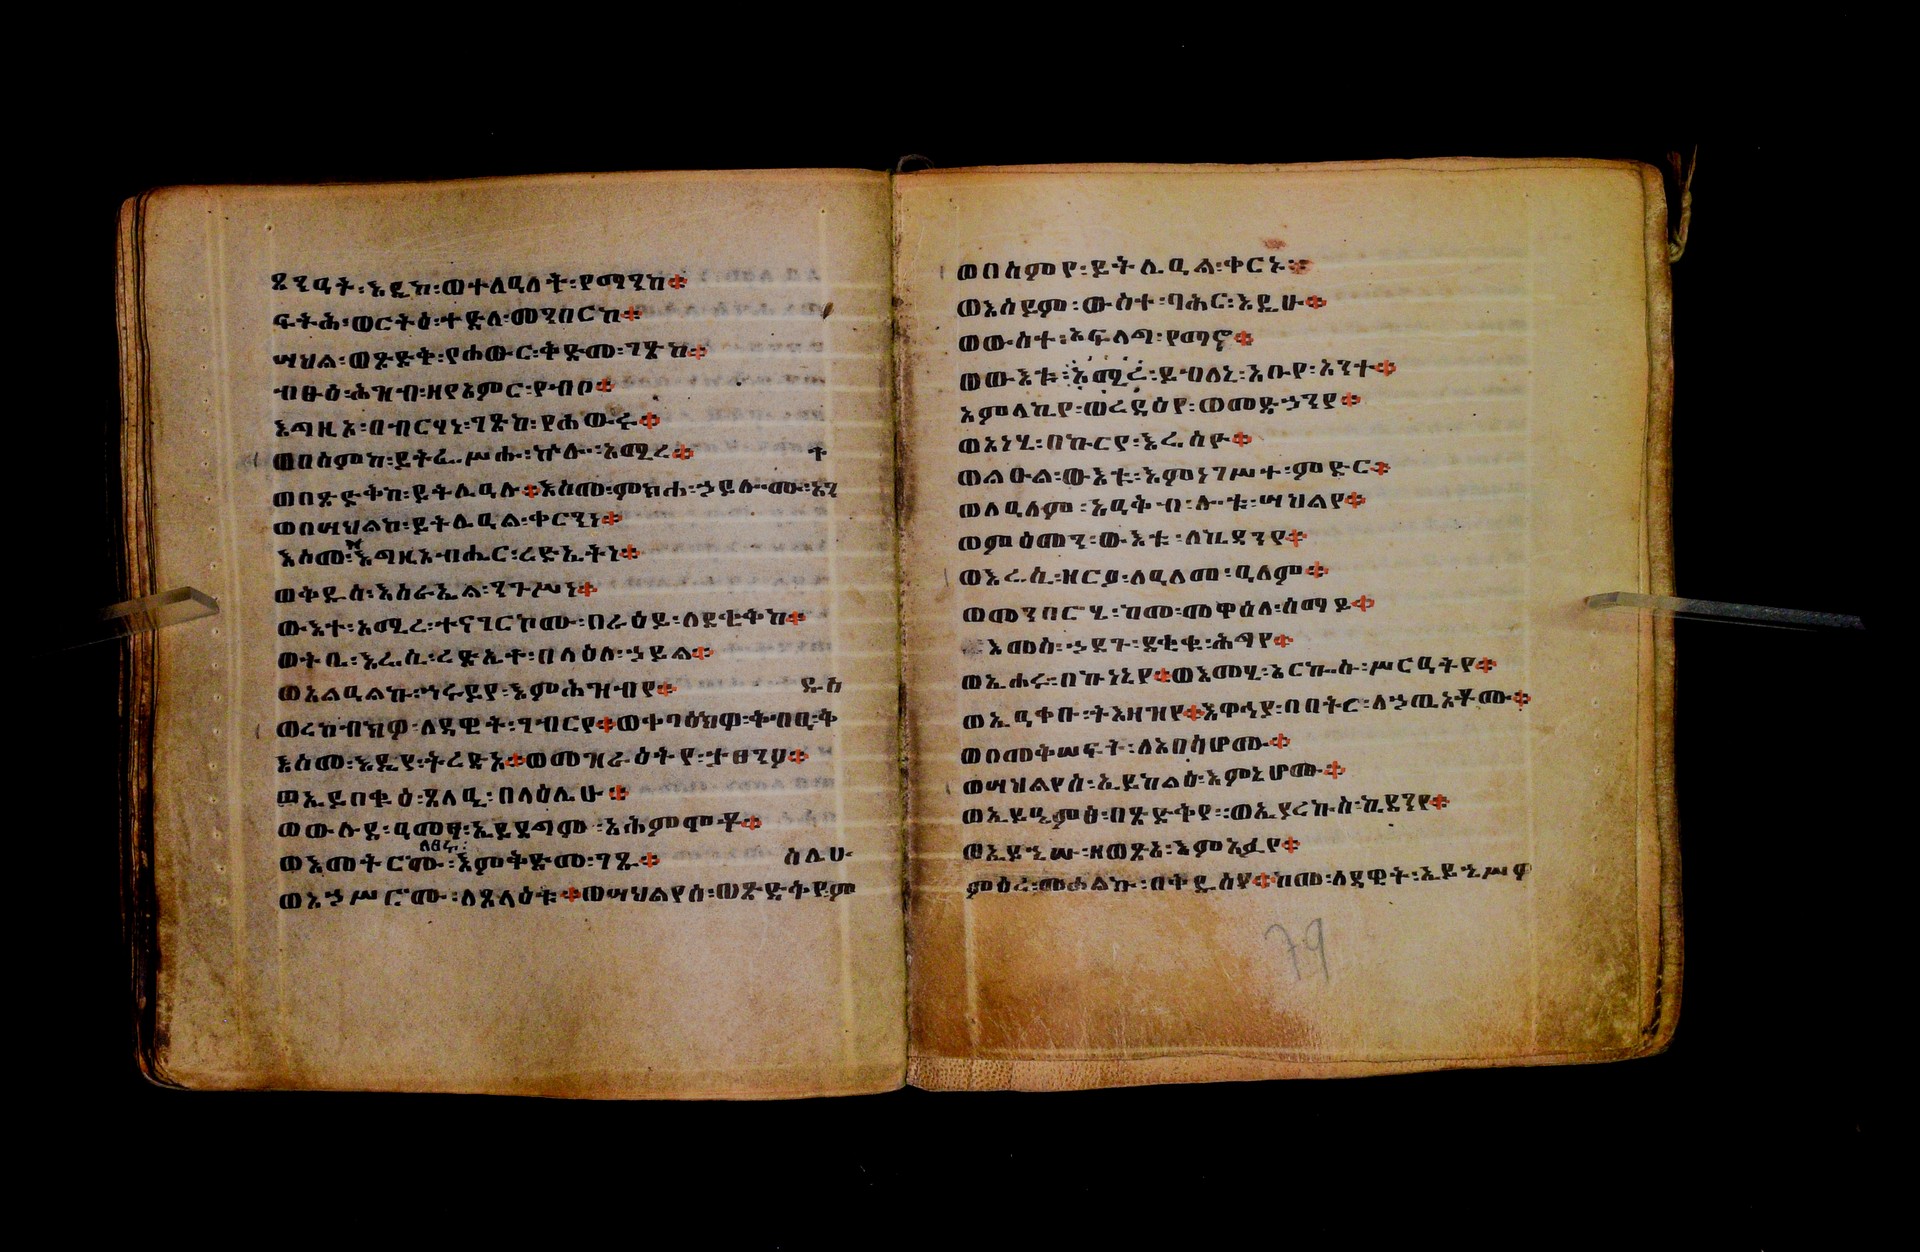 ጸንዓት፡እዴከ፡ወተለዓለት፡የማንከ።
ፍትሕ፡ወርትዕ፡ተድላ፡መንበርከ።
ሣህል፡ወጽድቅ፡የሐውር፡ቅድመ፡ገጽከ።
ብፁዕ፡ሕዝብ፡ዘየአምር፡የብቦ።
እግዚኦ፡በብርሃነ፡ገጽከ፡የሐውሩ።
ወበስምከ፡ይትፌሥሑ፡ኵሎ፡አሚረ። ተ
ወበጽድቅከ፡ይትሌዓሉ።እስመ፡ምክሐ፡ኃይሎሙ፡አን
ወበሣህልከ፡ይትሌዓል፡ቀርንነ።
እስመ፡እግዚአብሔር፡ረድኤትነ።
ወቅዱስ፡እስራኤል፡ንጉሥነ።
ውእተ፡አሚረ፡ተናገርኮሙ፡በራዕይ፡ለደቂቅከ።
ወትቤ፡እሬሲ፡ረድኤተ፡በላዕለ፡ኃያል።
ወአልዓልኩ፡ኅሩየየ፡እምሕዝብየ። ዱስ
ወረከብክዎ፡ለዳዊት፡ገብርየ።ወቀባዕክዎ፡ቅብዐ፡ቅ
እስመ፡እዴየ፡ትረድኦ።ወመዝራዕትየ፡ታፀንዖ።
ወኢይበቍዕ፡ጸላዒ፡በላዕሌሁ።
ወውሉደ፡ዓመፃ፡ኢይደግሙ፡አሕምሞቶ።
ለፀሩ፡
ወእመትርሙ፡እምቅድመ፡ገጹ። ስሌሁ
ወአኃሥሮሙ፡ለጸላዕቱ።ወሣህልየሰ፡ወጽድቅየ፡ም
ወበስምየ፡ይትሌዓል፡ቀርኑ።
ወእሰይም፡ውስተ፡ባሕር፡እዴሁ።
ወውስተ፡አፍላግ፡የማኖ።
ወውእቱ፡አሚረ፡ይብለኒ፡አቡየ፡አንተ።
አምላኪየ፡ወረዳዕየ፡ወመድኃንየ።
ወአነሂ፡በኩርየ፡እሬስዮ።
ወልዑል፡ውእቱ፡እምነገሥተ፡ምድር።
ወለዓለም፡አዓቅብ፡ሎቱ፡ሣህልየ።
ወምዕመን፡ውእቱ፡ለኪዳንየ።
ወእሬሲ፡ዘርዖ፡ለዓለመ፡ዓለም።
ወመንበርሂ፡ከመ፡መዋዕለ፡ሰማይ።
እመሰ፡ኃደጉ፡ደቂቁ፡ሕግየ።
ወኢሐሩ፡በኵነኔየ።ወእመሂ፡አርኰሱ፡ሥርዓትየ።
ወኢዓቀቡ፡ትእዛዝየ።እዋኅያ፡በበትር፡ለኃጢአቶሙ።
ወበመቅሠፍት፡ለአበሳሆሙ።
ወሣህልየሰ፡ኢይከልዕ፡እምኔሆሙ።
ወኢይዔምፅ፡በጽድቅየ፡ወኢያረኩስ፡ኪዳንየ።
ወኢይሔሡ፡ዘወጽአ፡እምአፉየ።
ምዕረ፡መሐልኩ፡በቅዱስየ።ከመ፡ለዳዊት፡ኢይሔሥዎ
79